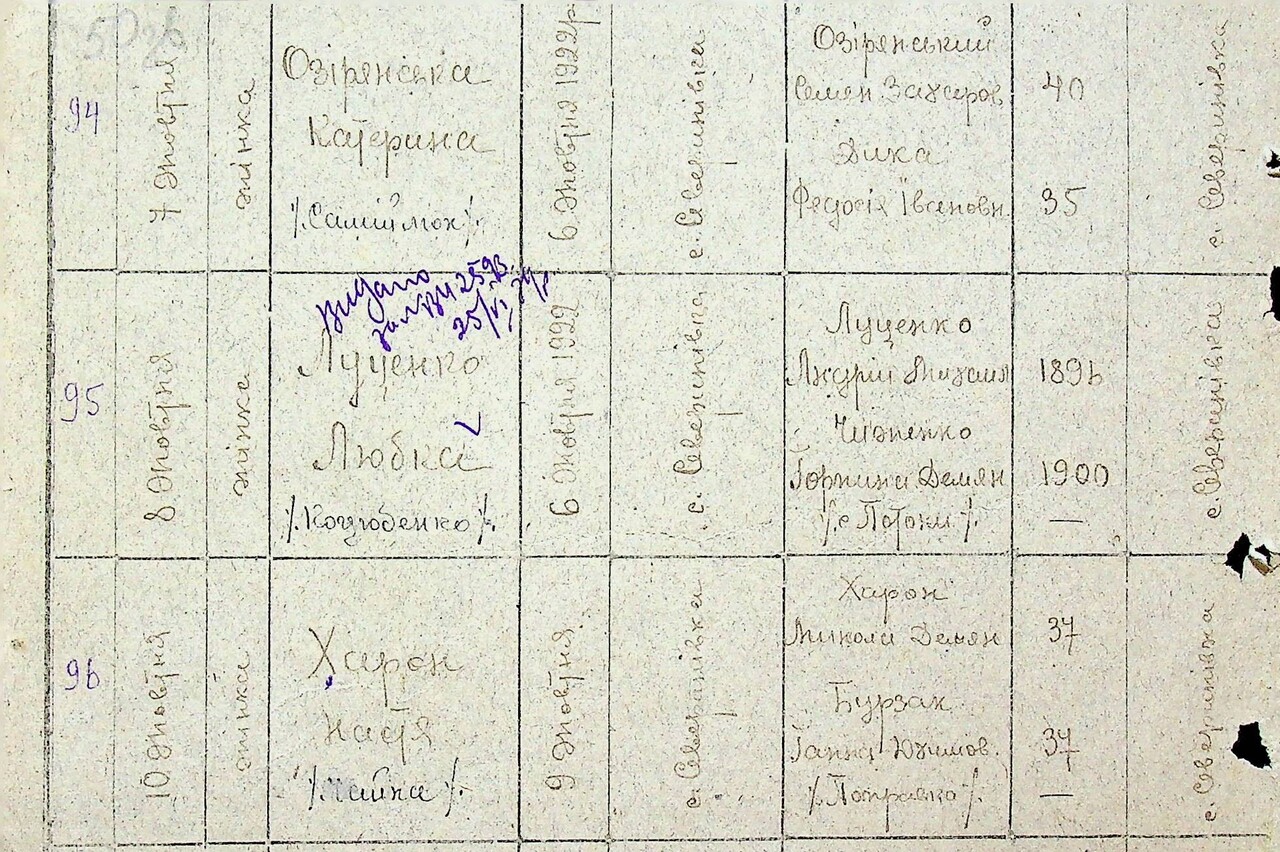 94
7 Жовтня
жінка
Озірянська
Катерина
6 Жовтня 1922р
с. Северинівка
Озірянський
Семен Захаров
40
Дика
Федосія Івановн
35
с. Северинівка
95
8 Жовтня
жінка
видано
25/VI
Луценко
Любка
/.Коцюбенко/.
6 Жовтня 1922
с. Северинівка
Луценко
Андрій Михаил
1896
Чиженко
Горпина Демян
1900
/.с Потоки/.
—
с. Северинівка
96
10 Жовтня
жінка
Харон
Настя
/.Чайка/.
9 Жовтня
с. Северинівка
Харон
Микола Демян
37
Бурзак
Ганна Юхимов.
37
/.Поправка/.
—
с. Северинівка